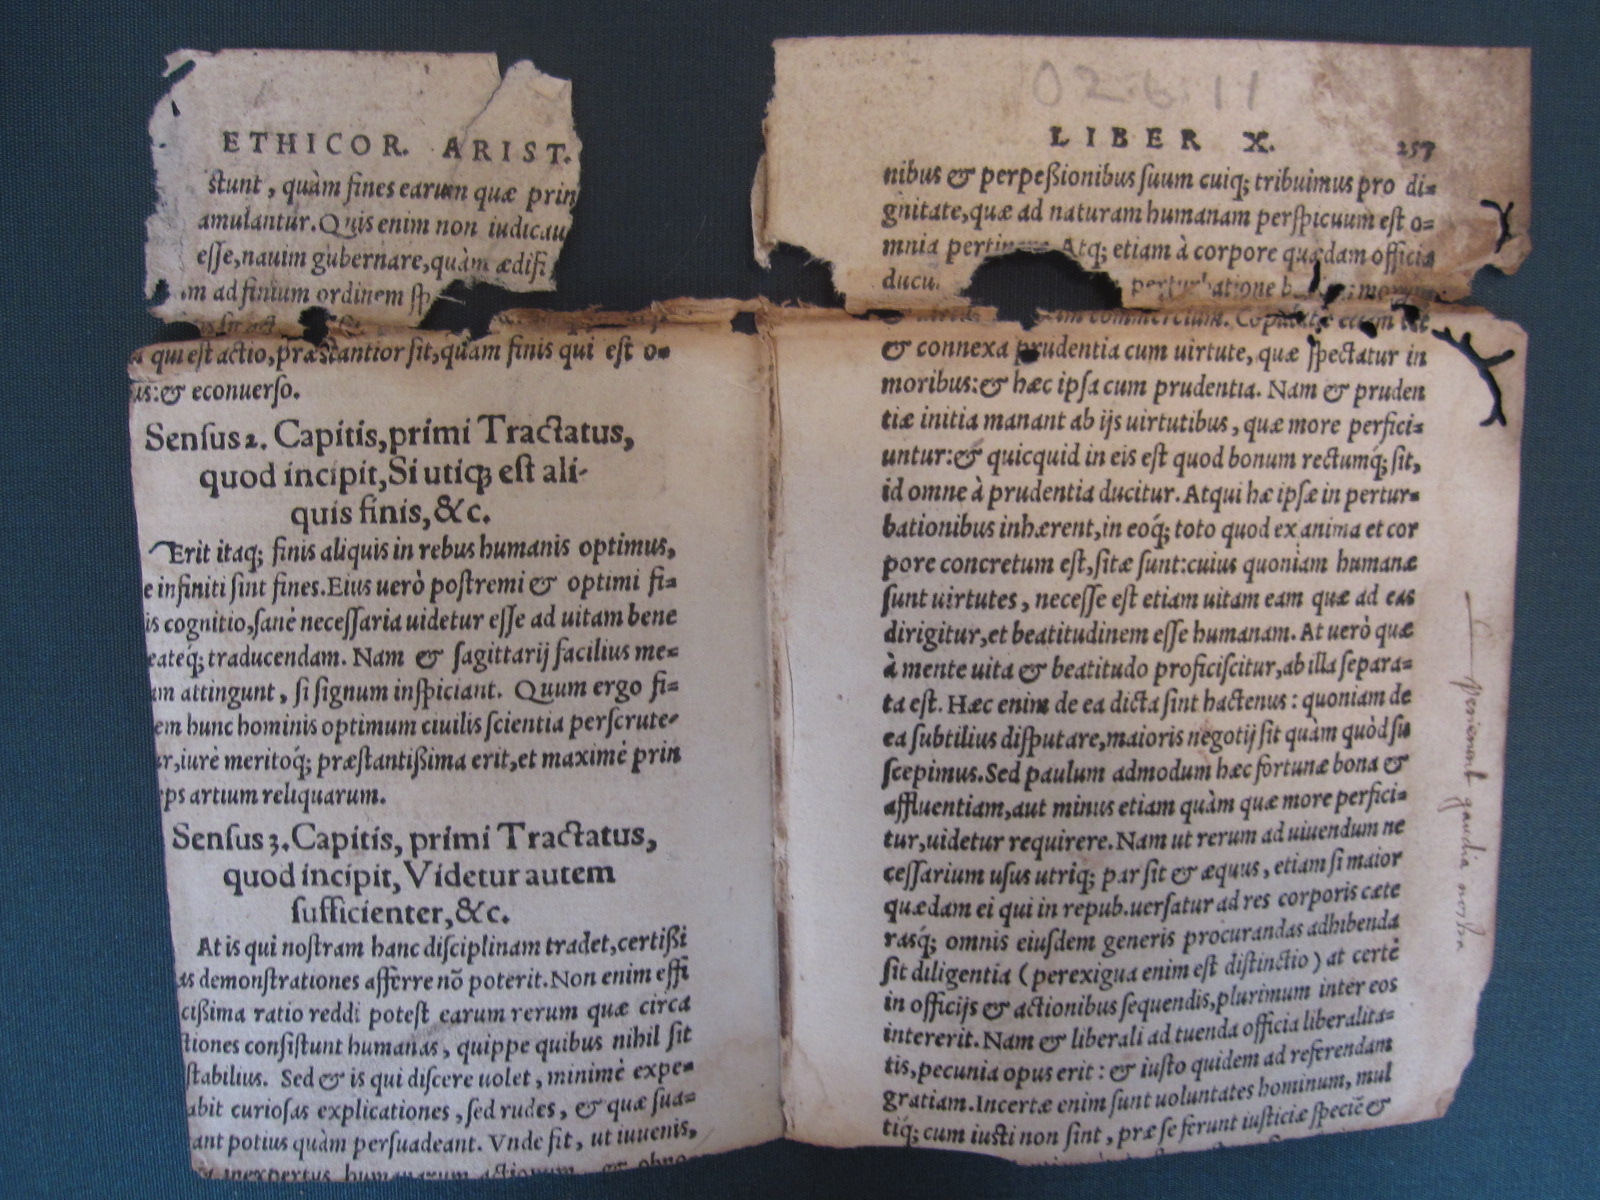 ETHICOR. ARIST.
stunt, quàm fines earum quæ prin
amulantur. Quis enim non iudicau
esse, nauim gubernare, quàm ædifi
ad finium ordinem sp
qui est actio, præstantior sit, quàm finis qui est o-
us: & econuerso.
Sensus 2. Capitis, primi Tractatus,
quod incipit, Si utiq; est ali-
quis finis, &c.
Erit itaq; finis aliquis in rebus humanis optimus,
e infiniti sint fines. Eius uerò postremi & optimi fi-
is cognitio, sanè necessaria uidetur esse ad uitam bene
eateq́; traducendam. Nam & sagittarij facilius me-
am attingunt, si signum inspiciant. Quum ergo fi-
em hunc hominis optimum ciuilis scientia perscrute-
ur, iurè meritoq́; præstantißima erit, et maximè prin
eps artium reliquarum.
Sensus 3. Capitis, primi Tractatus,
quod incipit, Videtur autem
sufficienter, &c.
At is qui nostram hanc disciplinam tradet, certißi
as demonstrationes afferre nõ poterit. Non enim effi
cißima ratio reddi potest earum rerum quæ circa
tiones consistunt humanas, quippe quibus nihil sit
stabilius. Sed & is qui discere uolet, minimè expe-
abit curiosas explicationes, sed rudes, & quæ sua-
ant potius quàm persuadeant. Vnde fit, ut iuuenis,
inexpertus humanarum actionum, & obno-
02.6.11
LIBER X. 257
nibus & perpeßionibus suum cuiq; tribuimus pro di-
gnitate, quæ ad naturam humanam perspicuum est o-
mnia Atq; etiam à corpore quædam officia
perturbatione
commercium.
& connexa prudentia cum uirtute, quæ spectatur in
moribus: & hæc ipsa cum prudentia. Nam & pruden
tiæ initia manant ab ijs uirtutibus, quæ more perfici-
untur: & quicquid in eis est quod bonum rectumq́; sit,
id omne à prudentia ducitur. Atqui hæ ipsæ in pertur-
bationibus inhærent, in eoq́; toto quod ex anima et cor
pore concretum est, sitæ sunt: cuius quoniam humanæ
sunt uirtutes, necesse est etiam uitam eam quæ ad eas
dirigitur, et beatitudinem esse humanam. At uerò quæ
à mente uita & beatitudo proficiscitur, ab illa separa-
ta est. Hæc enim de ea dicta sint hactenus: quoniam de
ea subtilius disputare, maioris negotij sit quàm quòd su
scepimus. Sed paulum admodum hæc fortunæ bona &
affluentiam, aut minus etiam quàm quæ more perfici-
tur, uidetur requirere. Nam ut rerum ad uiuendum ne
cessarium usus utriq; par sit & æquus, etiam si maior
quædam ei qui in repub. uersatur ad res corporis cæte
rasq́; omnis eiusdem generis procurandas adhibenda
sit diligentia (perexigua enim est distinctio) at certè
in officijs & actionibus sequendis, plurimum inter eos
intererit. Nam & liberali ad tuenda officia liberalita-
tis, pecunia opus erit: & iusto quidem ad referendam
gratiam. Incertæ enim sunt uoluntates hominum, mul
tiq́; cum iusti non sint, præ se ferunt iusticiæ speciẽ &
gaudia nostra